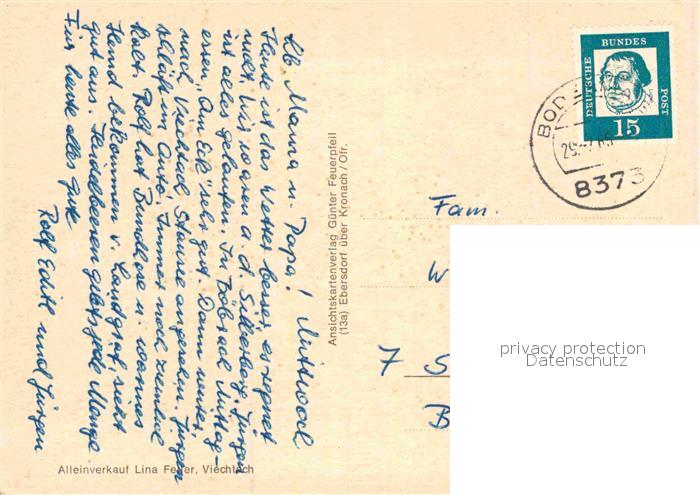 Lb. Mama u. Papa! Mittwoch
Heute ist das Wetter besser, es regnet
nicht. Wir waren a. d. Silberberg. Jürgen
ist alles gelaufen. In Böbrach Mittag-
essen "Am Eck" sehr gut. Dann weiter
nach Viechtach Stausee angesehen. Jürgen
schläft in Auto. Immer noch ziemlich
kalt. Rolf hat Bundhose u. warmes
Hemd bekommen v. Landgraf, sieht
gut aus. Heidelbeeren gibts jede Menge
Für heute alles Gute
Rolf Edith und Jürgen
Alleinverkauf Lina Feller, Viechtach
Ansichtskartenverlag Günter Feuerpfeil
(13a) Ebersdorf über Kronach/Ofr.
DEUTSCHE BUNDES POST
15
BOD
29.
8373
Fam.
W
7 S
B
privacy protection
Datenschutz